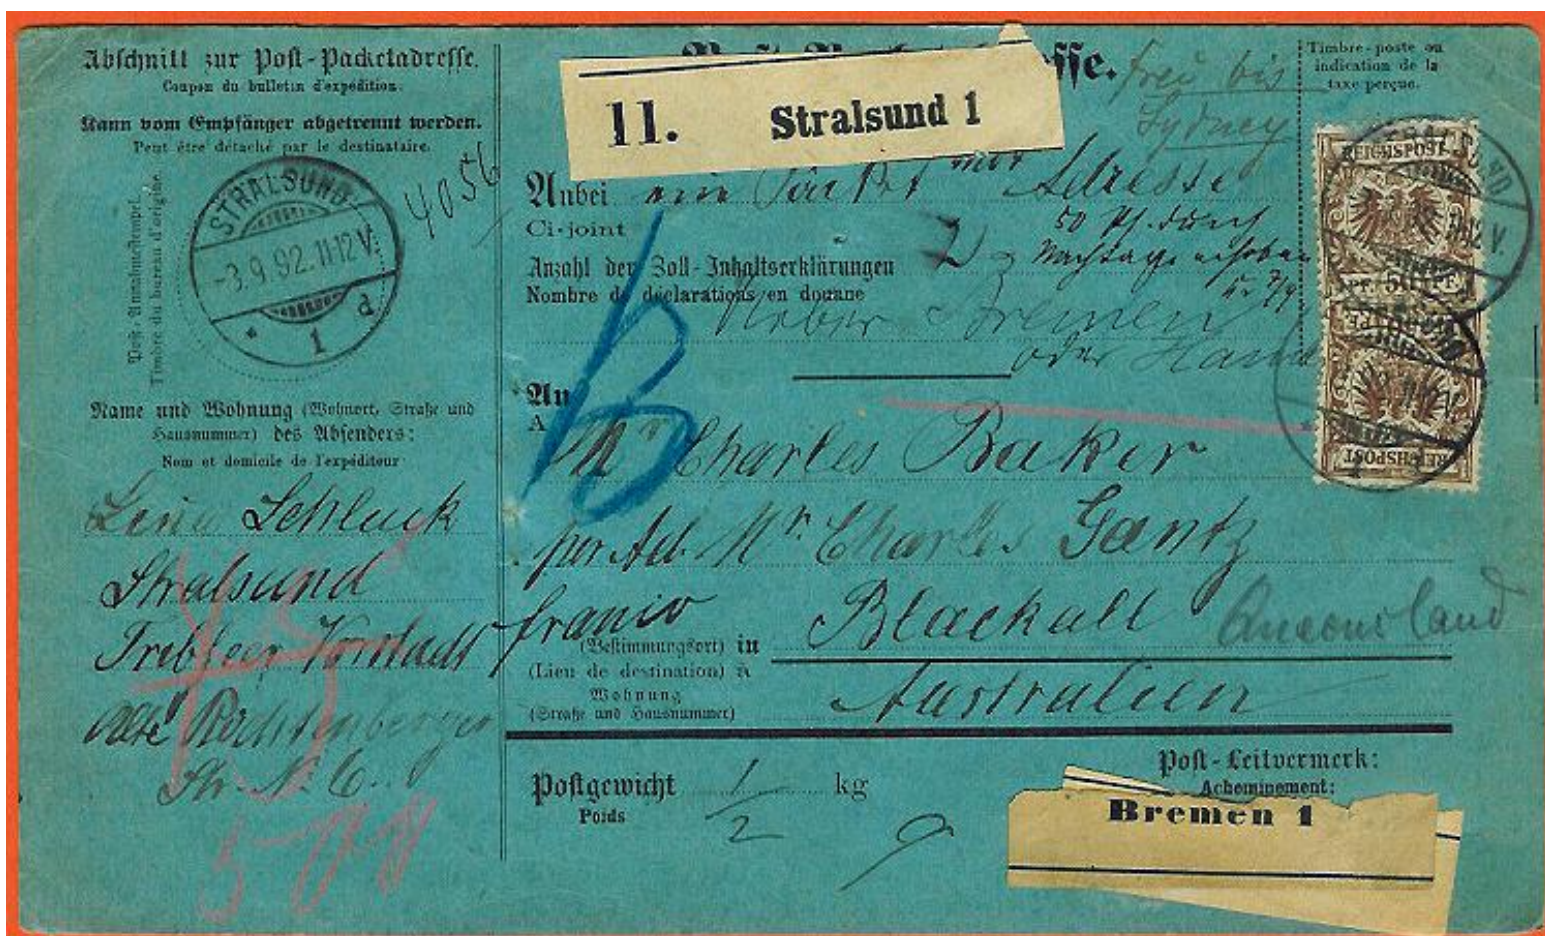 Abschnitt zur Post-Packetadresse.
Coupon du bulletin d'expédition.
Kann vom Empfänger abgetrennt werden.
Peut être détaché par le destinataire.
Post-Annahmestempel.
Timbre du bureau d'origine.
STRALSUND
-3.9.92.11-12V.
* 1 d.
4056
Name und Wohnung (Wohnort, Straße und
Hausnummer) des Absenders:
Nom et domicile de l'expéditeur
Schluck
Stralsund
Vorstadt
Str. N. 6.
11. Stralsund 1
sse.
frei bis
Sydney
Timbre-poste ou
indication de la
taxe perçue.
REICHSPOST
50 PF.
REICHSPOST
Anbei ein Packet Adresse
Ci-joint
50 Pf. durch
Anzahl der Zoll-Inhaltserklärungen 2
Nombre de déclarations en douane
Ueber Bremen
oder
An
A
Mr Charles Baker
per Ad. Mr. Charles Gantz
franco
(Bestimmungsort) in Blackall Queensland
(Lieu de destination) à
Wohnung
(Straße und Hausnummer) Australien
Postgewicht 1/2 kg
Poids
Post-Leitvermerk:
Acheminement:
Bremen 1